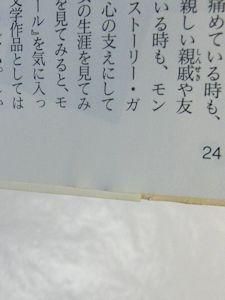 痛めている時も、
親しい親戚や友
しんせき
いる時も、モン
ストーリー・ガ
心の支えにして
女の生涯を見てみ
を見てみると、モ
ール』を気に入っ
文学作品としては
24